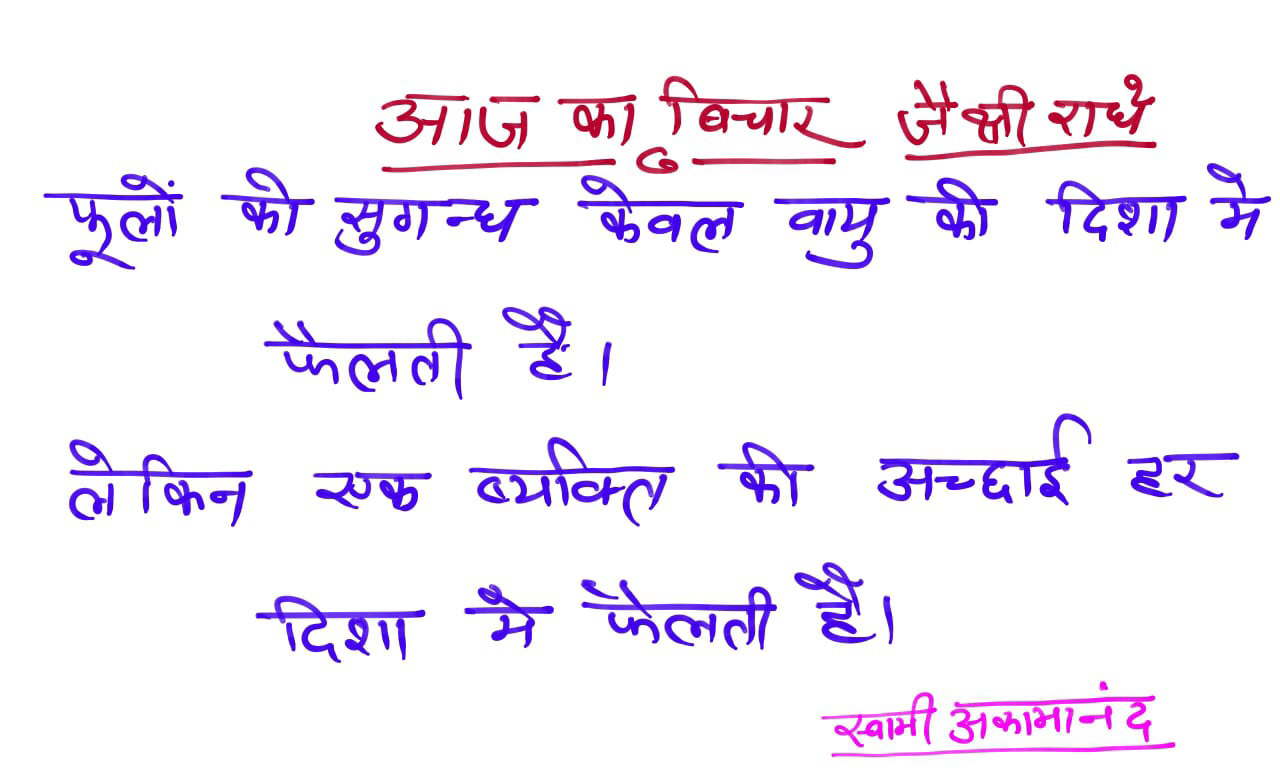 आज का बिचार जै श्री राधे
फूलों की सुगन्ध केवल वायु की दिशा मे
फैलती है।
लेकिन एक ब्यक्ति की अच्छाई हर
दिशा मे फैलती है।
स्वामी अकामानंद